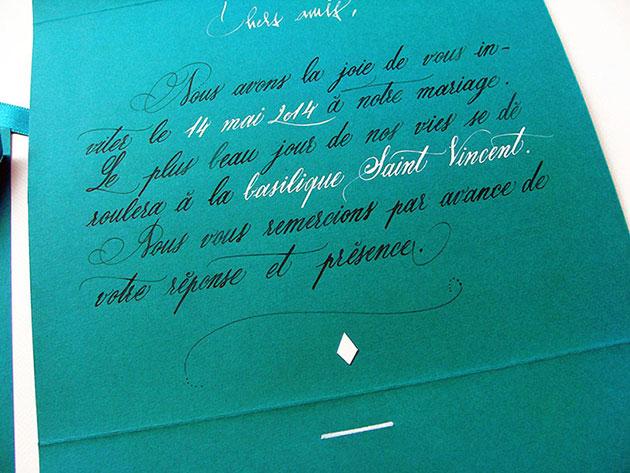 Chers amis,
Nous avons la joie de vous in-
viter le 14 mai 2014 à notre mariage.
Le plus beau jour de nos vies se dé
roulera à la basilique Saint Vincent.
Nous vous remercions par avance de
votre réponse et présence.